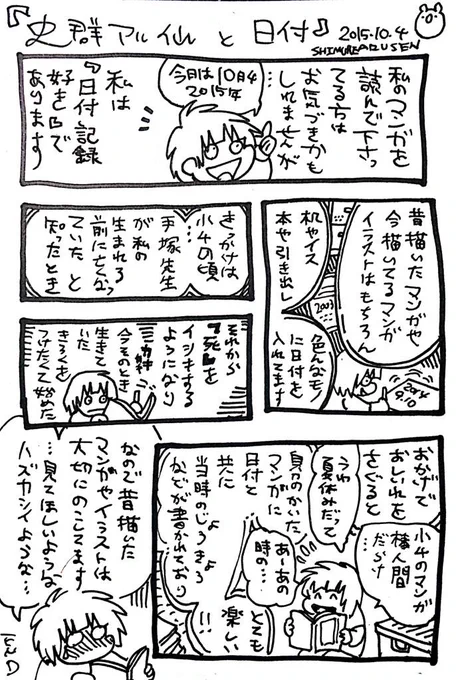 『史群アル仙と日付』
2015.10.4
SHIMUREARUSEN
私のマンガを
読んで下さっ
てる方は
お気づきかも
しれませんが
…
今日は10月4
2015年
私は
『日付』記録
好きBBで
あります
昔描いたマンガや
今描いてるマンガ
イラストはもちろん
机やイス
本や引き出し
2003
色んなモノ
に日付を
入れてます
2004
9.10
きっかけは
小4の頃
…
手塚先生
が私の
生まれる
前に亡くなっ
ていたと
知ったとき
それから
『死』を
イシキする
ようになり
今そのとき
生きて
いた
きろくを
つけたくて始めた
おかげで
おしいれを
さぐると
小4のマンガ
棒人間
だらけ
うわ
夏休みだって
自分のかいた
マンガに
日付と
共に
当時のじょうきょう
などが書かれており
あ〜あの
時の…
とても
楽しい
!!
なので昔描いた
マンガやイラストは
大切にのこしてます
…見てほしいような
ハズカシイような…
END